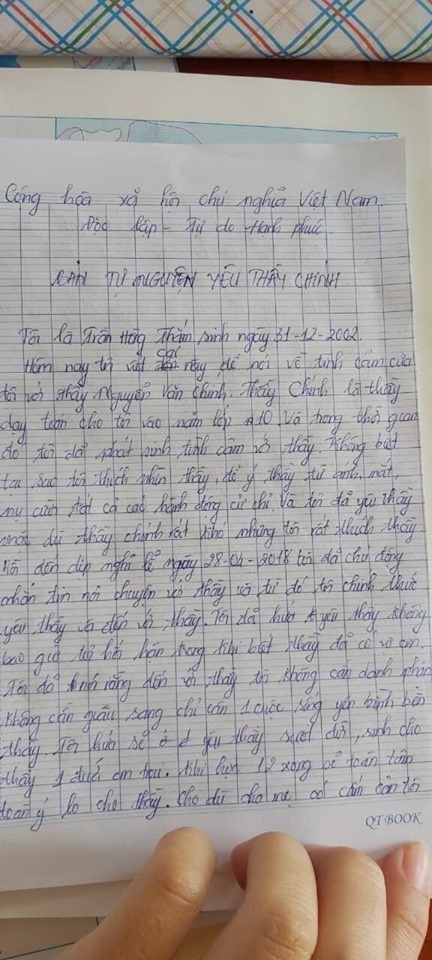 Cộng hòa xã hội chủ nghĩa Việt Nam
Độc lập - Tự do Hạnh phúc
BẢN TỰ NGUYỆN YÊU THẦY CHÍNH
Tôi là Trần Hồng Thắm sinh ngày 31-12-2002.
Hôm nay tôi viết cái này để nói về tình cảm của
tôi với thầy Nguyễn Văn Chính. Thầy Chính là thầy
dạy toán cho tôi vào năm lớp A10. Và trong thời gian
đó tôi đã phát sinh tình cảm với thầy. Không biết
tại sao tôi thích nhìn thầy, để ý thầy từ ánh mắt,
nụ cười tất cả các hành động cử chỉ. Và tôi đã yêu thầy
mặc dù thầy chính rất khó nhưng tôi rất thích thầy
đến dịp nghỉ lễ ngày 28-04-2018 tôi đã chủ động
nhắn tin nói chuyện với thầy và từ đó tôi chính thức
yêu thầy và đến với thầy. Tôi đã hứa yêu thầy không
bao giờ tôi hối hận trong khi biết thầy đã có vợ con.
Tôi đã nói rằng đến với thầy tôi không cần danh phận
không cần giàu sang chỉ cần 1 cuộc sống yên bình bên
thầy. Tôi hứa sẽ yêu thầy suốt đời, sinh cho
thầy 1 đứa em bé. Khi học 12 xong sẽ toàn tâm
toàn ý lo cho thầy. Cho dù cha mẹ có cấm cản tôi
QT BOOK